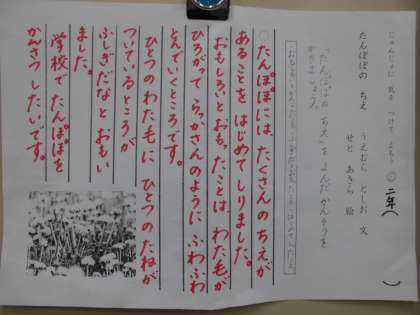 じゅんじょに 気を つけて よもう ○ 二年(　　)
たんぽぽの ちえ うえむら としお 文
せと あきら 絵
「たんぽぽの ちえ」を よんだ かんそうを
かきましょう。
○たんぽぽには、たくさんの ちえが
あることを はじめて しりました。
おもしろいと おもったことは、わた毛が
ひろがって らっかさんのように ふわふわ
とんでいくところです。
ひとつのわた毛に ひとつの たねが
ついているところが
ふしぎだなと おもい
ました。
学校で たんぽぽを
かんさつ したいです。